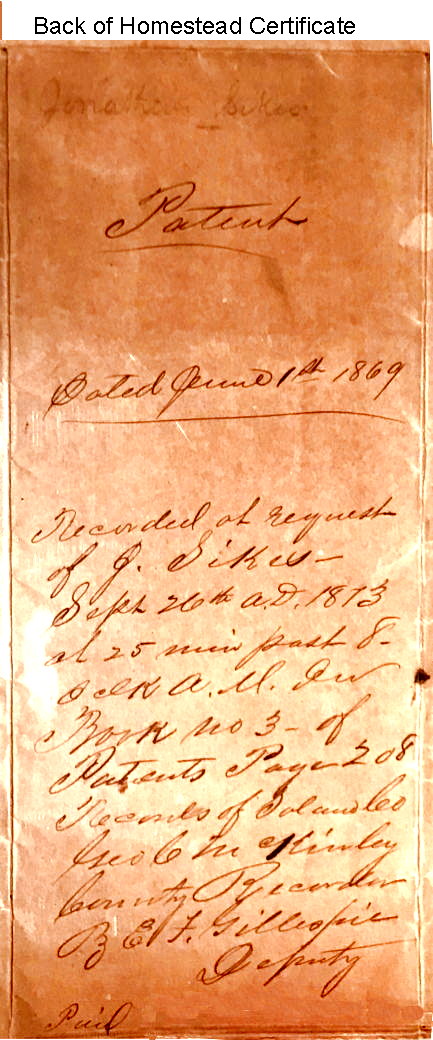 Back of Homestead Certificate
Jonathan Sikes
Patent
Dated June 1st 1869
Recorded at request
of J. Sikes -
Sept 26th A.D. 1873
at 25 min past 8-
oclk A. M. In
Book No 3 - of
Patents Page 208
Records of Solano Co
Geo C McKinley
County Recorder
By E. F. Gillespie
Deputy
Paid